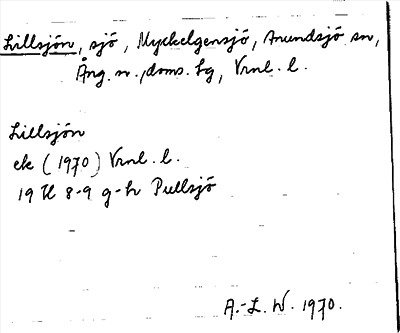 Lillsjön, sjö, Myckelgensjö, Anundsjö sn,
Ång. n., doms. sg, Vrnl. l.
Lillsjön
ek (1970) Vrnl. l.
19 H 8-9 g-h Pullsjö
A.-L. W. 1970.